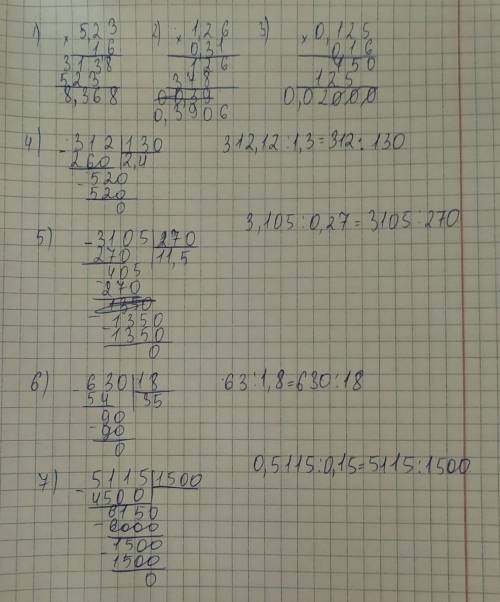 1) × 5,23
1 6
3138
523
8,368
2) × 1,26
0,31
126
378
0,3906
3) × 0,125
0,16
750
125
0,02000
4) - 312 | 130
260 | 2,4
- 520
520
0
312,12 : 1,3 = 312 : 130
5) - 3105 | 270
270 | 11,5
405
- 270
- 1350
1350
0
3,105 : 0,27 = 3105 : 270
6) - 630 | 18
54 | 35
- 90
90
0
63 : 1,8 = 630 : 18
7) - 5115 | 1500
4500
6150
- 6000
- 1500
1500
0
0,5115 : 0,15 = 5115 : 1500